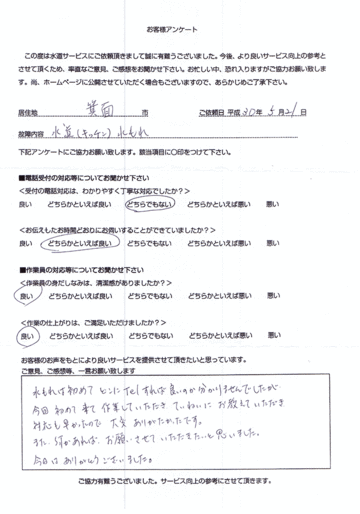 お客様アンケート
この度は水道サービスにご依頼頂きまして誠に有難うございました。今後、より良いサービス向上の参考と
させて頂くため、率直なご意見、ご感想をお聞かせ下さい。お忙しい中、恐れ入りますがご協力お願い致しま
す。尚、ホームページに公開させていただく場合もございますので、あらかじめご了承下さい。
居住地 箕面 市 ご依頼日 平成 30年 5月 21日
故障内容 水道(キッチン) 水もれ
下記アンケートにご協力お願い致します。該当項目に〇印をつけて下さい。
■電話受付の対応等についてお聞かせ下さい
<受付の電話対応は、わかりやすく丁寧な対応でしたか?>
良い どちらかといえば良い どちらでもない どちらかといえば悪い 悪い
<お伝えしたお時間どおりにお伺いすることができていましたか?>
良い どちらかといえば良い どちらでもない どちらかといえば悪い 悪い
■作業員の対応等についてお聞かせ下さい
<作業員の身だしなみは、清潔感がありましたか?>
良い どちらかといえば良い どちらでもない どちらかといえば悪い 悪い
<作業の仕上がりは、ご満足いただけましたか?>
良い どちらかといえば良い どちらでもない どちらかといえば悪い 悪い
お客様のお声をもとにより良いサービスを提供させて頂きたいと思っています。
ご意見、ご感想等、一言お願い致します
水もれは初めて どこにTelすれば良いのか分かりませんでしたが
今回 初めて 来て 作業していただき ていねいに お教えていただき
対応も早かったので 大変 ありがたかったです。
また 何かあれば、お願いさせて いただきたいと思いました。
今日は ありがとうございました。
ご協力有難うございました。サービス向上の参考にさせて頂きます。